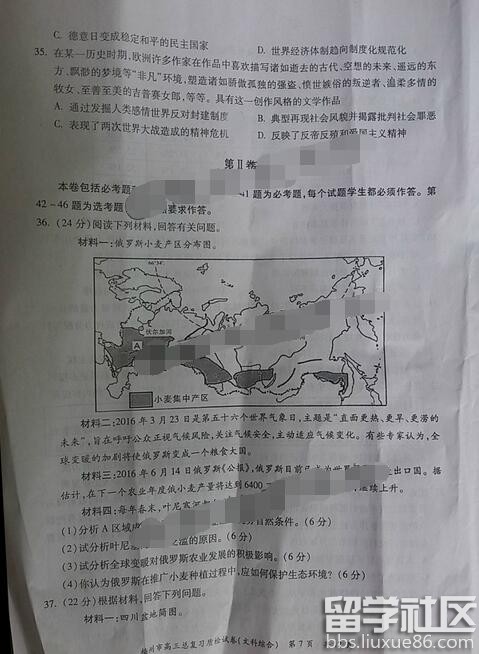 C. 德意日变成稳定和平的民主国家
D. 世界经济体制趋向制度化规范化
35. 在某一历史时期,欧洲许多作家在作品中喜欢描写诸如逝去的古代、空想的未来、遥远的东
方、飘渺的梦境等“非凡”环境,塑造诸如骄傲孤独的强盗、愤世嫉俗的叛逆者、温柔多情的
牧女、至善至美的吉普赛女郎,等等。具有这一创作风格的文学作品
A. 通过发掘人类感情世界反对封建制度
B. 典型再现社会风貌并揭露批判社会罪恶
C. 表现了两次世界大战造成的精神危机
D. 反映了反帝反殖和爱国主义精神
第Ⅱ卷
本卷包括必考题
41 题为必考题,每个试题学生都必须作答。第
42-46 题为选考题
要求作答。
36. (24 分)阅读下列材料,回答有关问题。
材料一:俄罗斯小麦产区分布图。
66°34′
伏尔加河
A
小麦集中产区
材料二:2016 年 3 月 23 日是第五十六个世界气象日,主题是“直面更热、更旱、更涝的
未来”,旨在呼吁公众正视气候风险,关注气候安全,主动适应气候变化。有些专家认为,全
球变暖的加剧将使俄罗斯变成一个粮食大国。
材料三:2016 年 6 月 14 日俄罗斯《公报》,俄罗斯目前已成为世界
出口国。据
估计,在下一个农业年度俄小麦产量将达到6400
继续上升。
材料四:每年春末,叶尼塞河
(1)分析 A 区域
自然条件。(6 分)
(2)试分析叶尼塞
泛滥的原因。(6 分)
(3)试分析全球变暖对俄罗斯农业发展的积极影响。(6 分)
(4)你认为俄罗斯在推广小麦种植过程中,应如何保护生态环境?(6 分)
37. (22 分)根据材料,回答下列问题。
材料一:四川盆地简图。
市高三总复习质检试卷(文科综合)
第 7 页
留学社区
bbs.liuxue86.com